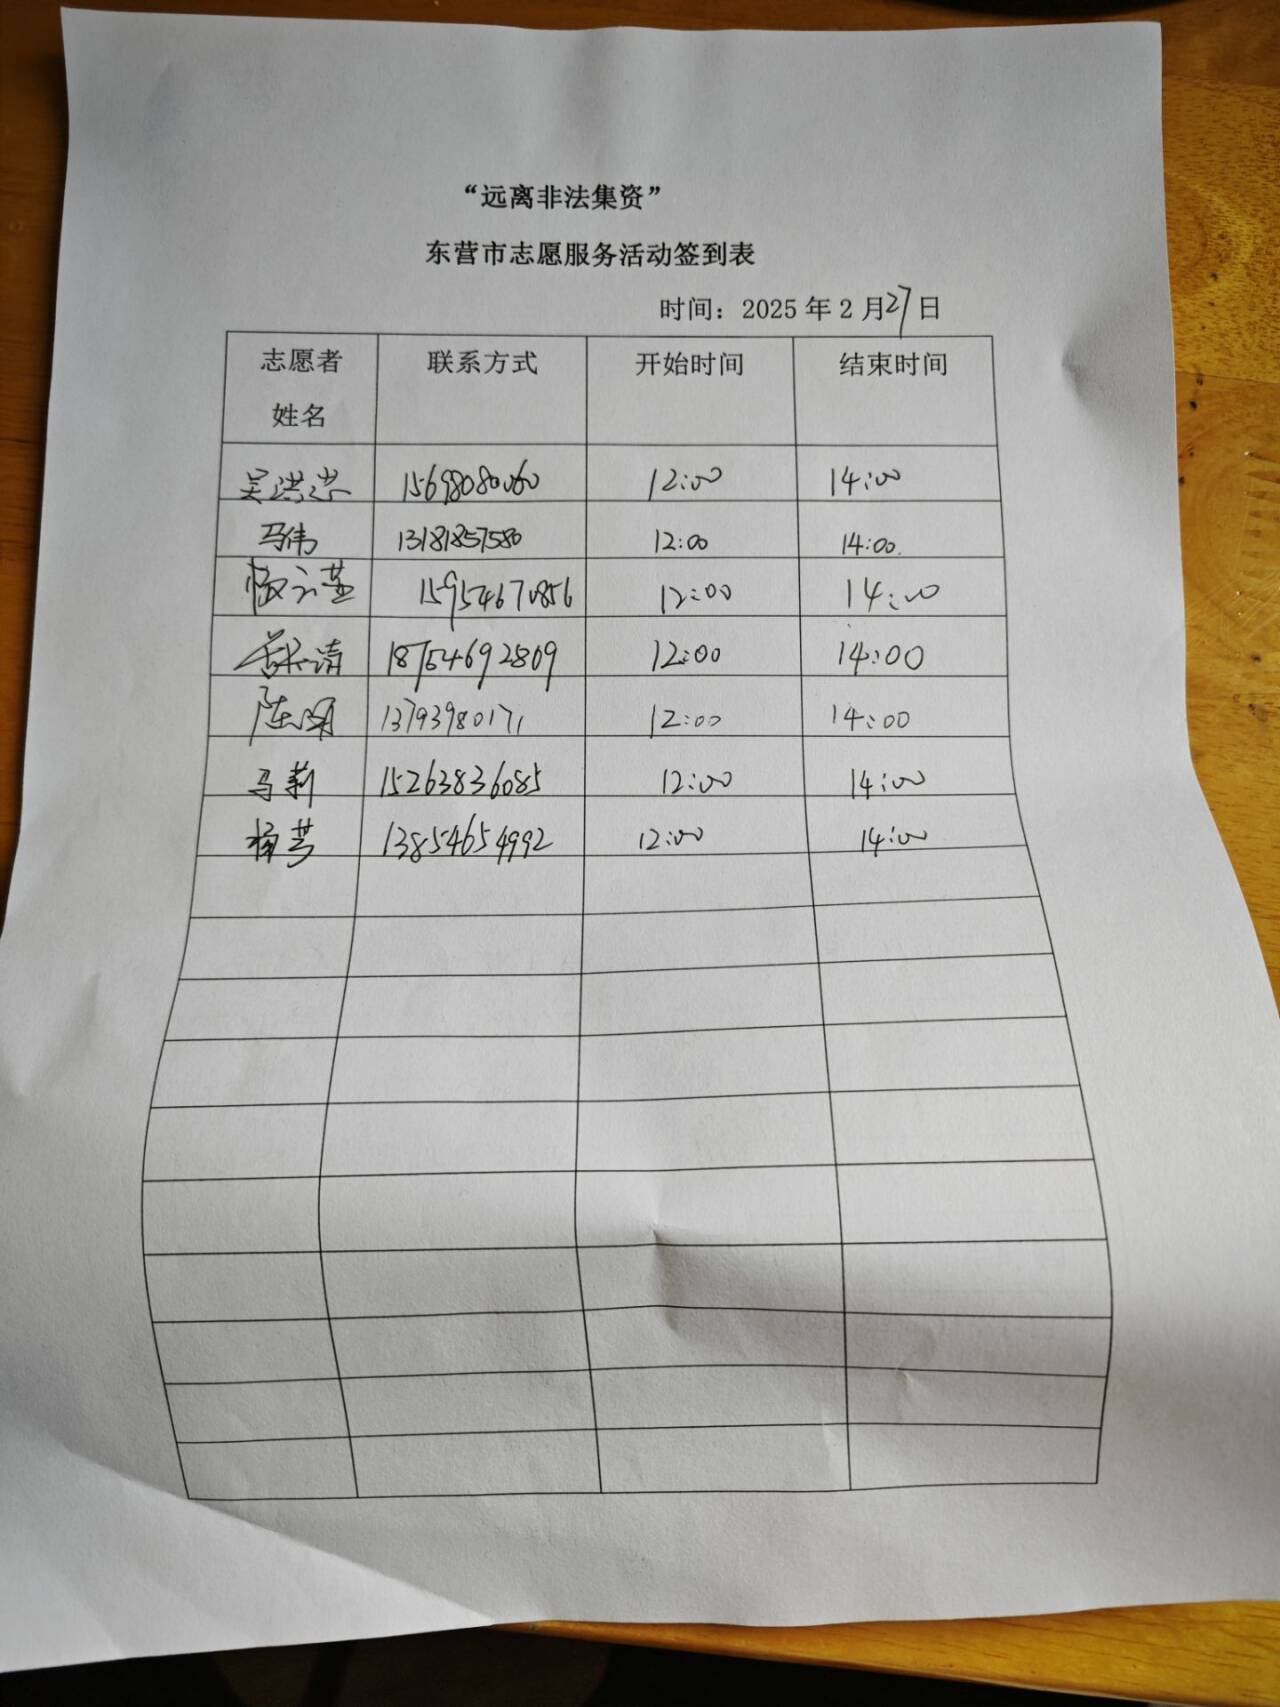 “远离非法集资”
东营市志愿服务活动签到表
时间：2025年2月27日
志愿者姓名 联系方式 开始时间 结束时间
吴洪 15698080060 12:00 14:00
马伟 13181857580 12:00 14:00
15954670856 12:00 14:00
18754692809 12:00 14:00
陈 13793980171 12:00 14:00
马莉 15263836085 12:00 14:00
杨芳 13854654992 12:00 14:00